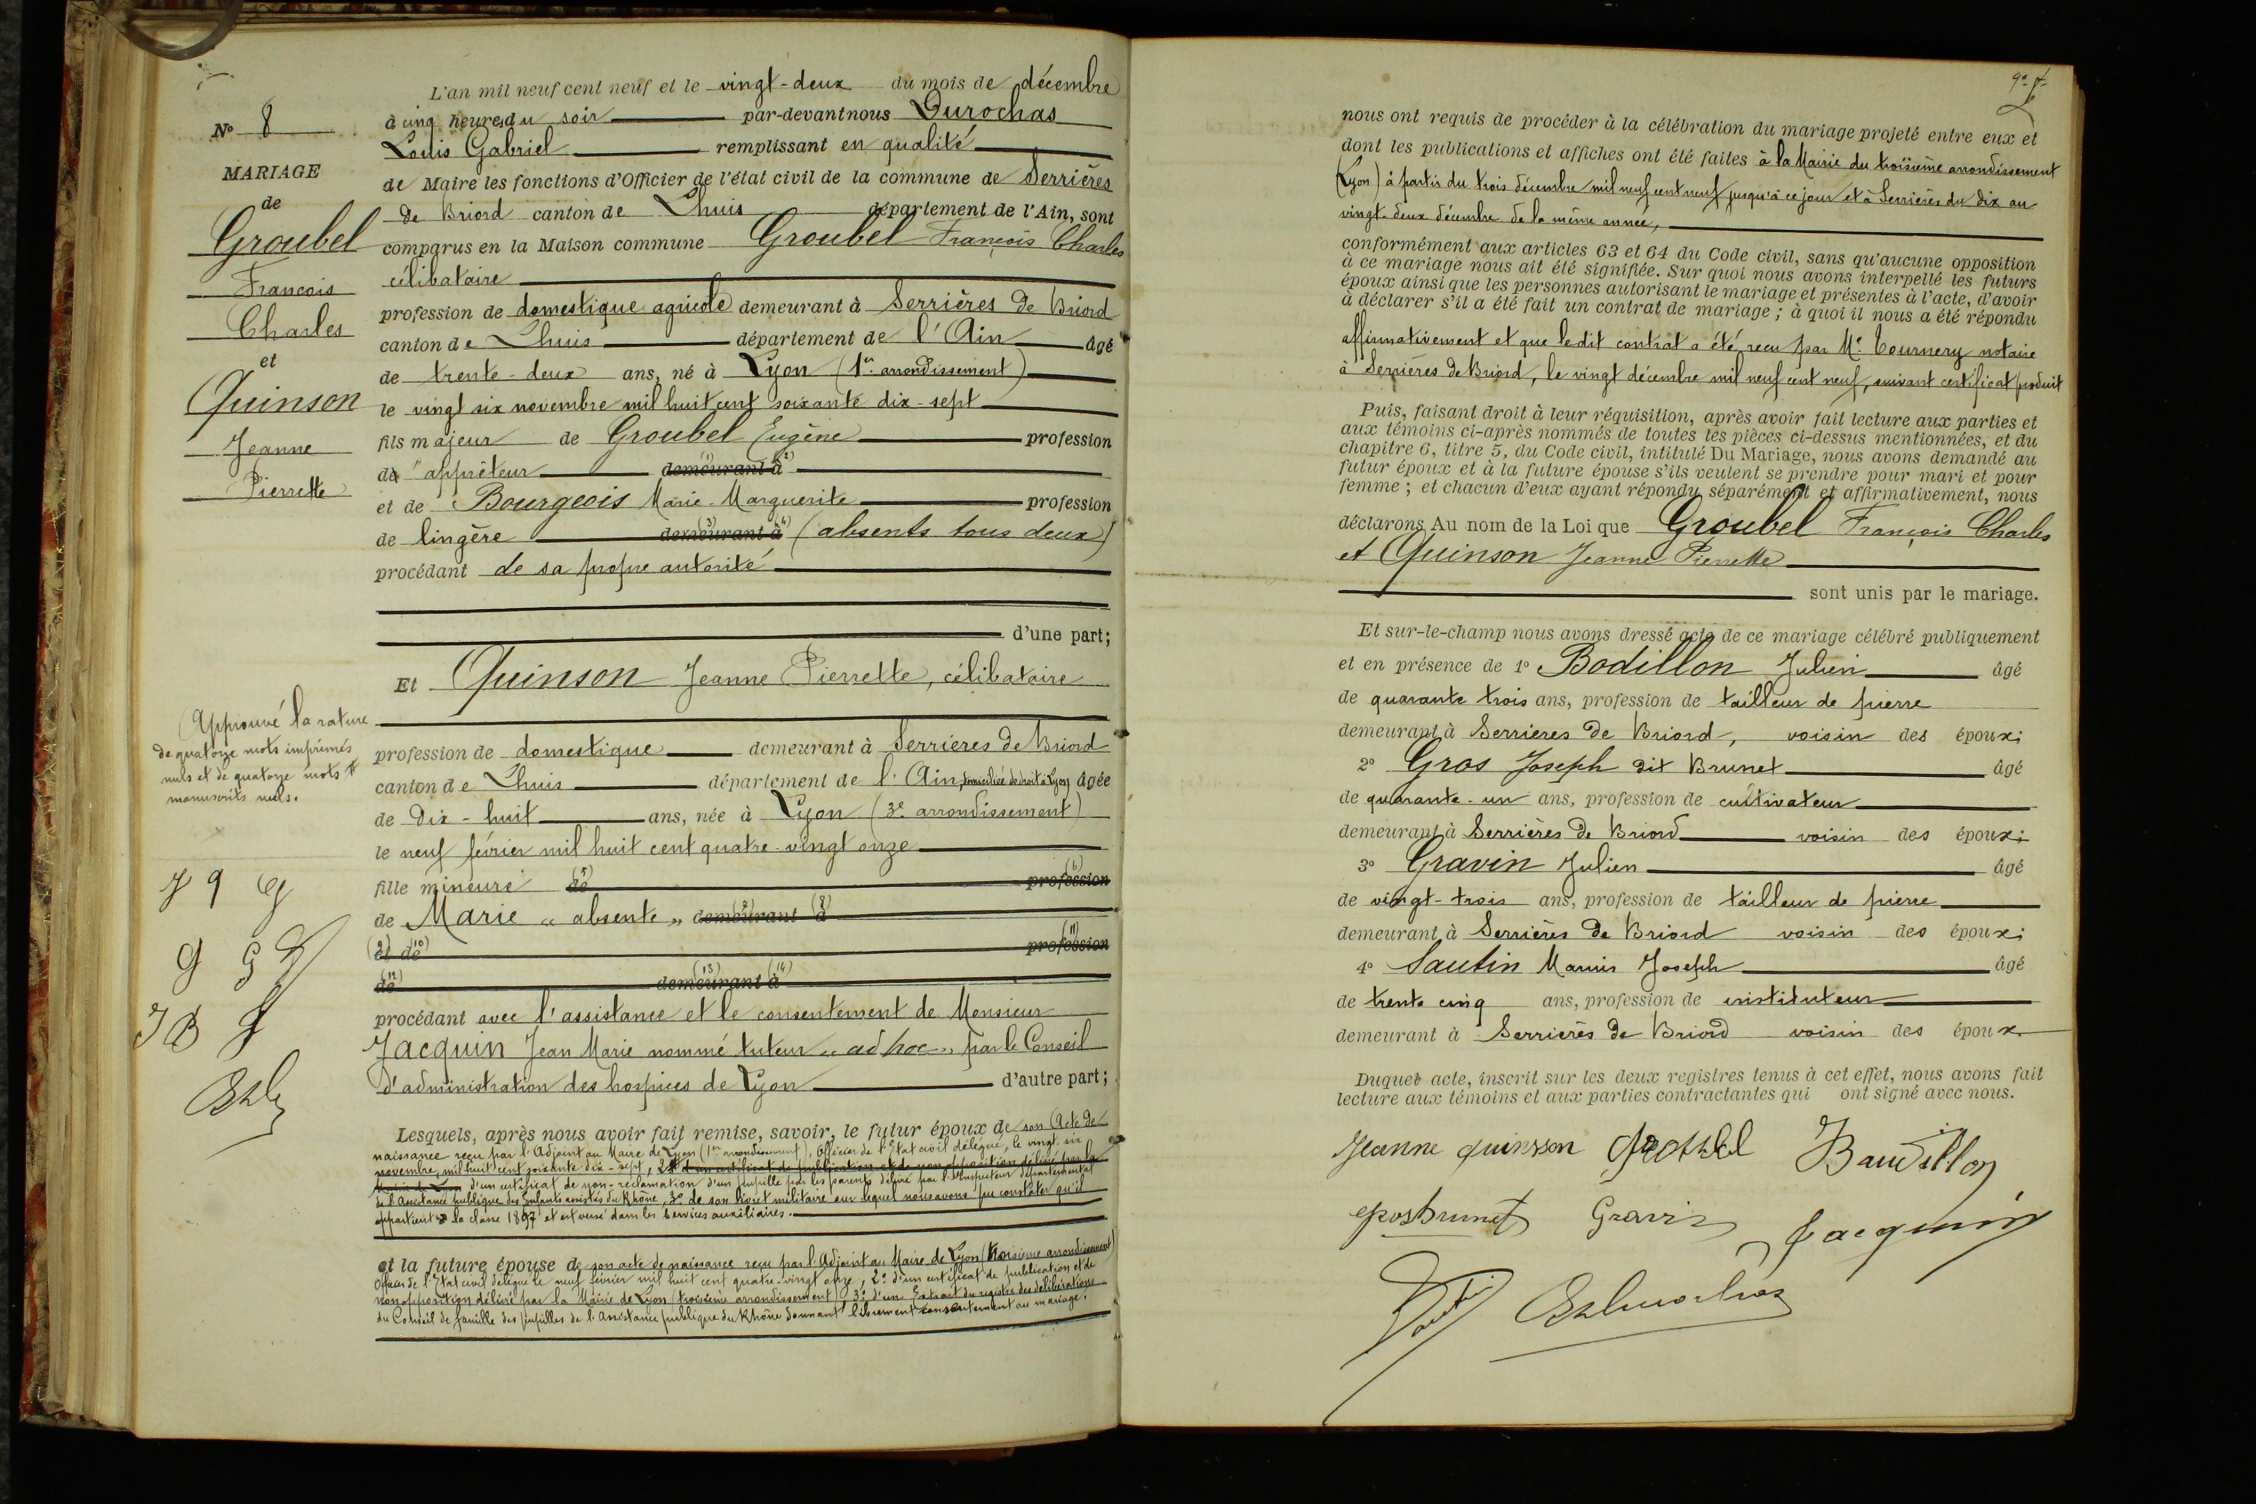 N° 8
MARIAGE
de
Groubel
François
Charles
et
Quinson
Jeanne
Pierrette
Approuvé la rature
de quatorze mots imprimés
nuls et de quatorze mots
manuscrits nuls.
J q
G G
J B
L'an mil neuf cent neuf et le vingt-deux du mois de décembre
à cinq heures du soir par-devant nous Durochas
Louis Gabriel remplissant en qualité
de Maire les fonctions d'Officier de l'état civil de la commune de Serrières
de Briord canton de Lhuis département de l'Ain, sont
comparus en la Maison commune Groubel François Charles
célibataire
profession de domestique agricole demeurant à Serrières de Briord
canton de Lhuis département de l'Ain âgé
de trente-deux ans, né à Lyon (1er arrondissement)
le vingt six novembre mil huit cent soixante dix-sept
fils majeur de Groubel Eugène profession
d' apprêteur demeurant à
et de Bourgeois Marie-Marguerite profession
de lingère demeurant à (absents tous deux)
procédant de sa propre autorité
d'une part;
Et Quinson Jeanne Pierrette, célibataire
profession de domestique demeurant à Serrières de Briord
canton de Lhuis département de l'Ain, domiciliée de droit à Lyon âgée
de dix-huit ans, née à Lyon (3e arrondissement)
le neuf février mil huit cent quatre-vingt onze
fille mineure (5) de (6) profession
de Marie « absente » (7) demeurant (8) à
(9) et (10) de (11) profession
(12) de (13) demeurant (14) à
procédant avec l'assistance et le consentement de Monsieur
Jacquin Jean Marie nommé tuteur « ad hoc » par le Conseil
d'administration des hospices de Lyon d'autre part;
Lesquels, après nous avoir fait remise, savoir, le futur époux de son Acte de
naissance reçu par l'Adjoint au Maire de Lyon (1er arrondissement), Officier de l'Etat civil délégué, le vingt-six
novembre, mil huit cent soixante dix-sept, 2° d'un certificat de publication et de non opposition délivré par la
Mairie de Lyon d'un certificat de non-réclamation d'un pupille par les parents délivré par l'Inspecteur départemental
de l'Assistance publique des Enfants assistés du Rhône, 3° de son livret militaire sur lequel nous avons pu constater qu'il
appartient à la classe 1897 et est versé dans les Services auxiliaires.
et la future épouse de son acte de naissance reçu par l'Adjoint au Maire de Lyon (troisième arrondissement)
Officier de l'Etat civil délégué le neuf février mil huit cent quatre-vingt onze, 2° d'un certificat de publication et de
non opposition délivré par la Mairie de Lyon (troisième arrondissement), 3° d'un Extrait du registre des délibérations
du Conseil de famille des pupilles de l'Assistance publique du Rhône donnant librement consentement au mariage.
nous ont requis de procéder à la célébration du mariage projeté entre eux et
dont les publications et affiches ont été faites à la Mairie du troisième arrondissement
(Lyon) à partir du trois décembre mil neuf cent neuf jusqu'à ce jour et à Serrières du dix au
vingt-deux décembre de la même année,
conformément aux articles 63 et 64 du Code civil, sans qu'aucune opposition
à ce mariage nous ait été signifiée. Sur quoi nous avons interpellé les futurs
époux ainsi que les personnes autorisant le mariage et présentes à l'acte, d'avoir
à déclarer s'il a été fait un contrat de mariage ; à quoi il nous a été répondu
affirmativement et que ledit contrat a été reçu par Me Tournery notaire
à Serrières de Briord, le vingt décembre mil neuf cent neuf, suivant certificat produit
Puis, faisant droit à leur réquisition, après avoir fait lecture aux parties et
aux témoins ci-après nommés de toutes les pièces ci-dessus mentionnées, et du
chapitre 6, titre 5, du Code civil, intitulé Du Mariage, nous avons demandé au
futur époux et à la future épouse s'ils veulent se prendre pour mari et pour
femme ; et chacun d'eux ayant répondu séparément et affirmativement, nous
déclarons Au nom de la Loi que Groubel François Charles
et Quinson Jeanne Pierrette
sont unis par le mariage.
Et sur-le-champ nous avons dressé acte de ce mariage célébré publiquement
et en présence de 1° Bodillon Julien âgé
de quarante trois ans, profession de tailleur de pierre
demeurant à Serrières de Briord, voisin des époux;
2° Gros Joseph dit Brunet âgé
de quarante-un ans, profession de cultivateur
demeurant à Serrières de Briord voisin des époux;
3° Gravin Julien âgé
de vingt-trois ans, profession de tailleur de pierre
demeurant à Serrières de Briord voisin des époux;
4° Sautin Marius Joseph âgé
de trente cinq ans, profession de instituteur
demeurant à Serrières de Briord voisin des époux
Duquel acte, inscrit sur les deux registres tenus à cet effet, nous avons fait
lecture aux témoins et aux parties contractantes qui ont signé avec nous.
Jeanne quinson Groubel Baudillon
grosbrunet Gravin Jacquin